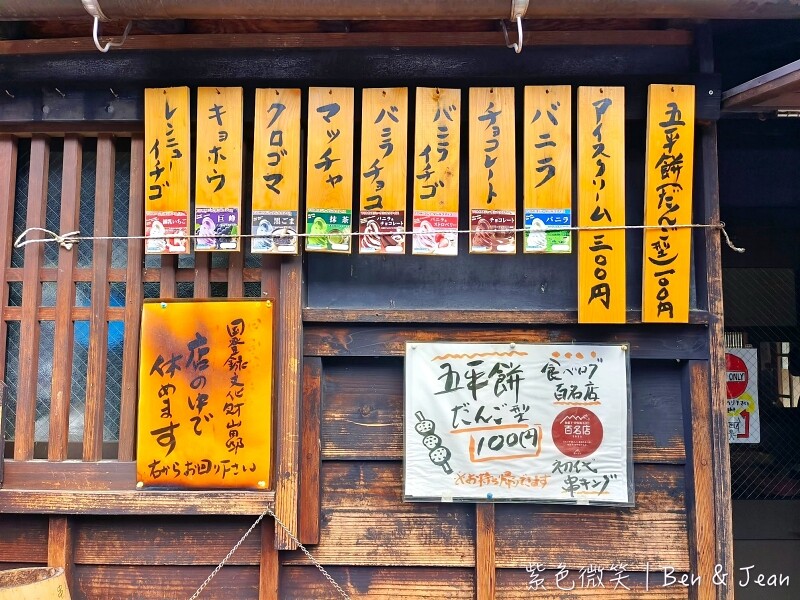 五平餅(だんご型)100円
アイスクリーム 三〇〇円
バニラ
バニラ
チョコレート
バニライチゴ
バニラ
イチゴ
バニラチョコ
バニラ&
チョコレート
マッチャ
抹茶
クロゴマ
黒ごま
キョホウ
巨峰
レンニューイチゴ
練乳いちご
国登録文化財山田邸
店の中で
休めます
右からお回り下さい
五平餅
だんご型
100円
※お持ち帰りできます
食べログ
百名店
百名店
初代
串キング
ONLY
紫色微笑 | Ben & Jean